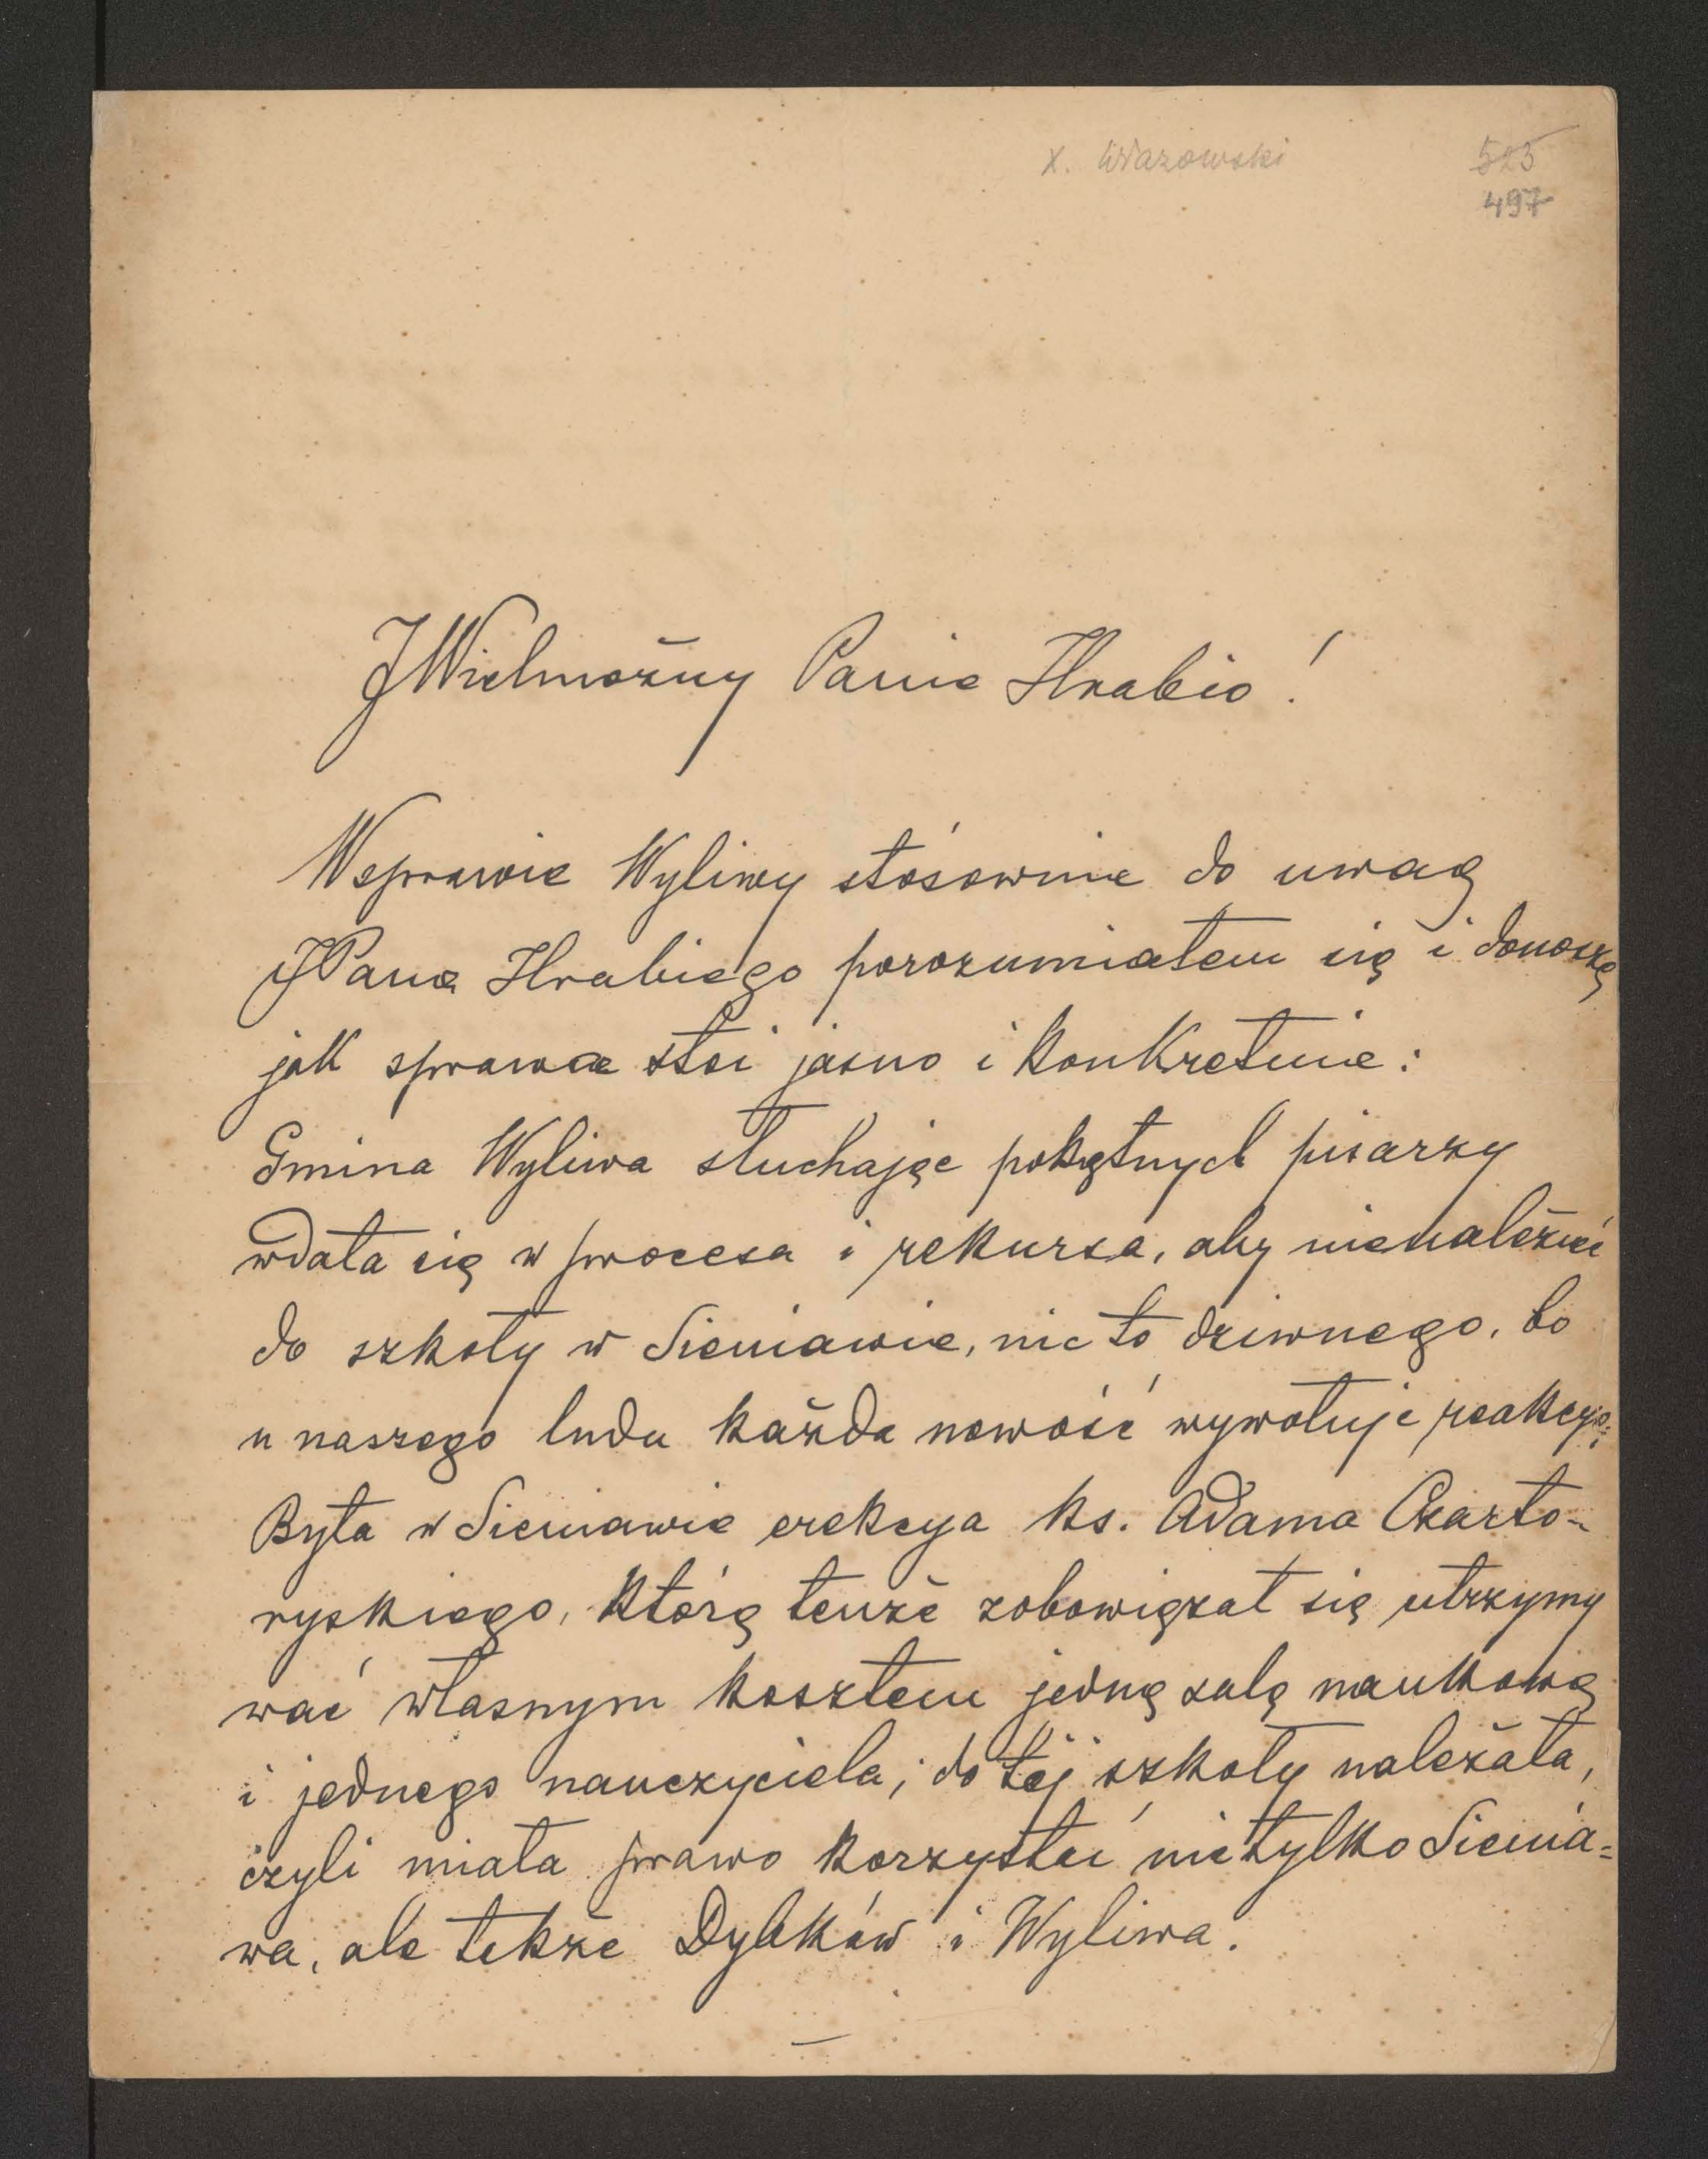 x. Wiazowski
523
497
JWielmożny Panie Hrabio!
Wsprawie Wyliwy stósownie do uwag
JPana Hrabiego porozumiałem się i donoszę
jak sprawa stoi jasno i konkretnie:
Gmina Wyliwa słuchając pokątnych pisarzy
wdała się w procesa i rekursa, aby nienależeć
do szkoły w Sieniawie, nic to dziwnego, bo
u naszego ludu każda nowość wywołuje reakcyą;
Była w Sieniawie erekcya ks. Adama Czarto-
ryskiego, którą tenże zobowiązał się utrzymy
wać własnym kosztem jedną salę naukową
i jednego nauczyciela; do tej szkoły należała,
czyli miała prawo korzystać nietylko Sienia=
wa, ale także Dybków i Wyliwa.